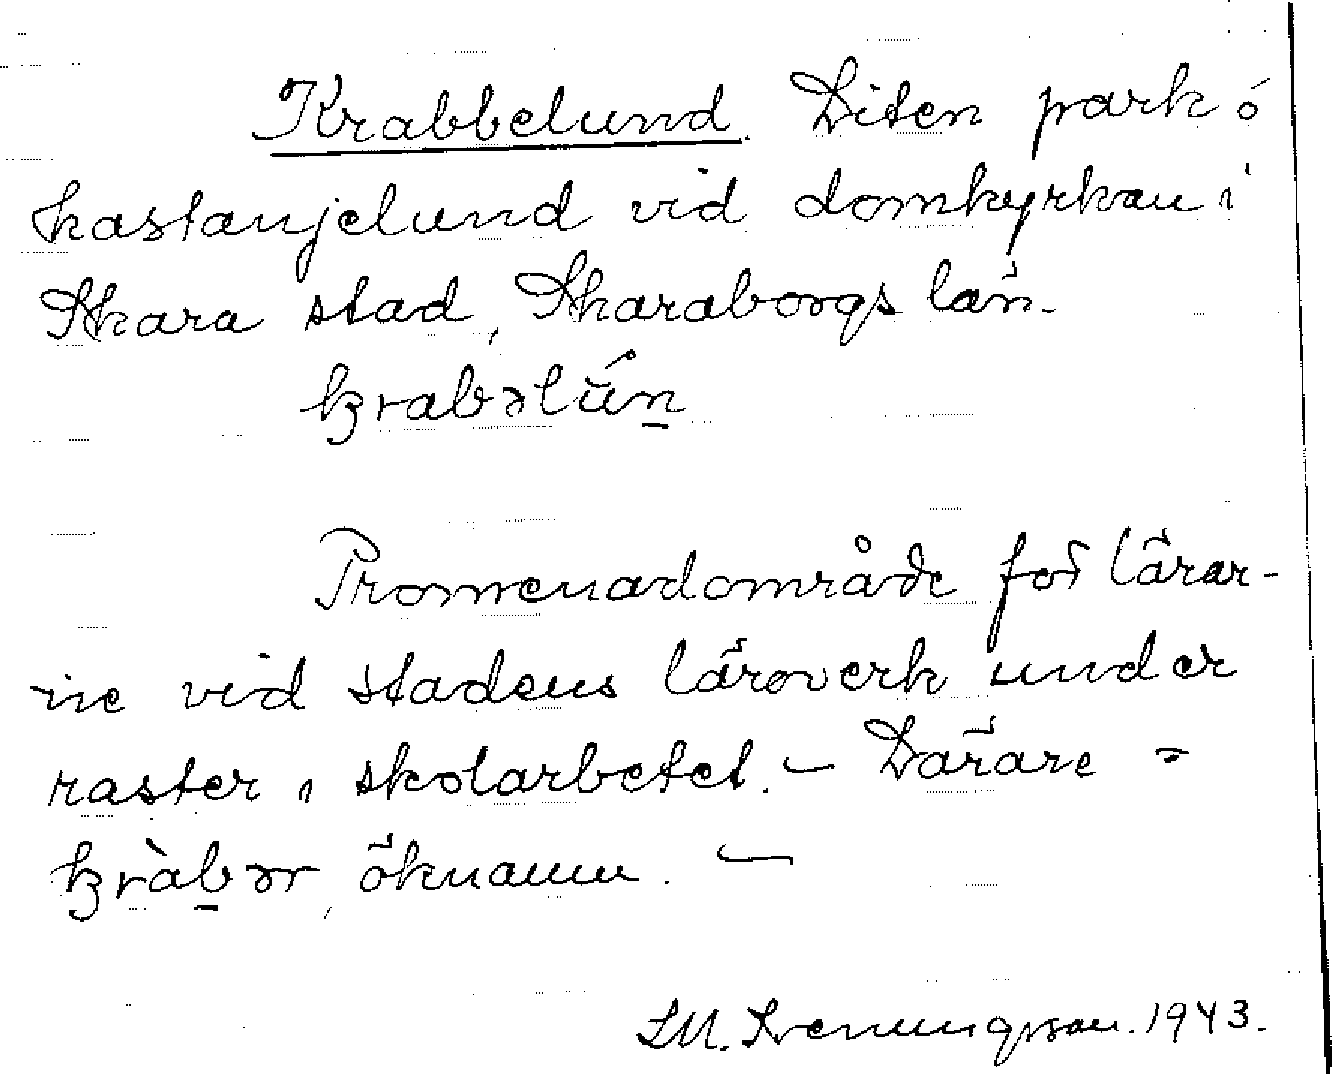 Krabbelund. Liten park o
kastanjelund vid domkyrkan i
Skara stad, Skaraborgs län.
krabəlún
Promenadområde för lärar-
ne vid stadens läroverk under
raster i skolarbetet. – Lärare =
kràbər, öknamn. –
1943.